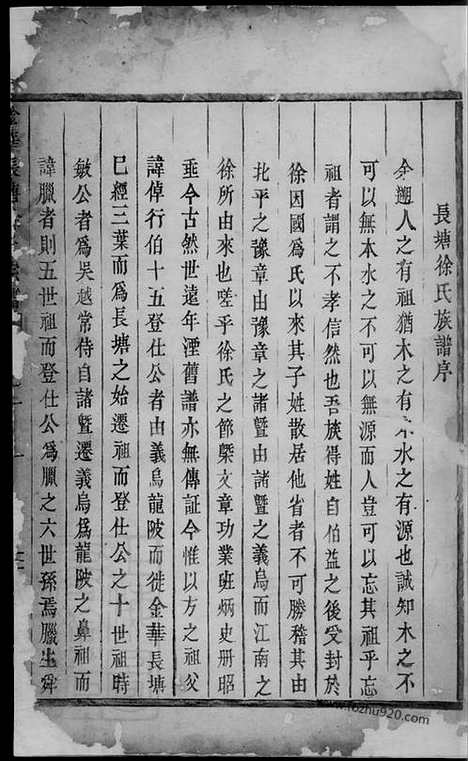 長塘徐氏族譜序
余遡人之有祖猶木之有本水之有源也誠知木之不
可以無本水之不可以無源而人豈可以忘其祖乎忘
祖者謂之不孝信然也吾族得姓自伯益之後受封於
徐因國為氏以來其子姓散居他省者不可勝稽其由
北平之豫章由豫章之諸暨由諸暨之義烏而江南之
徐所由來也嗟乎徐氏之節槩文章功業班炳史册昭
垂今古然世遠年湮舊譜亦無傳証今惟以方之祖父
諱倬行伯十五登仕公者由義烏龍陂而徙金華長塘
巳經三葉而為長塘之始遷祖而登仕公之十世祖時
敏公者為吳越常侍自諸暨遷義烏為龍陂之鼻祖而
諱臘者則五世祖而登仕公為臘之六世孫焉臘生舜
長塘
www.fozhu920.com